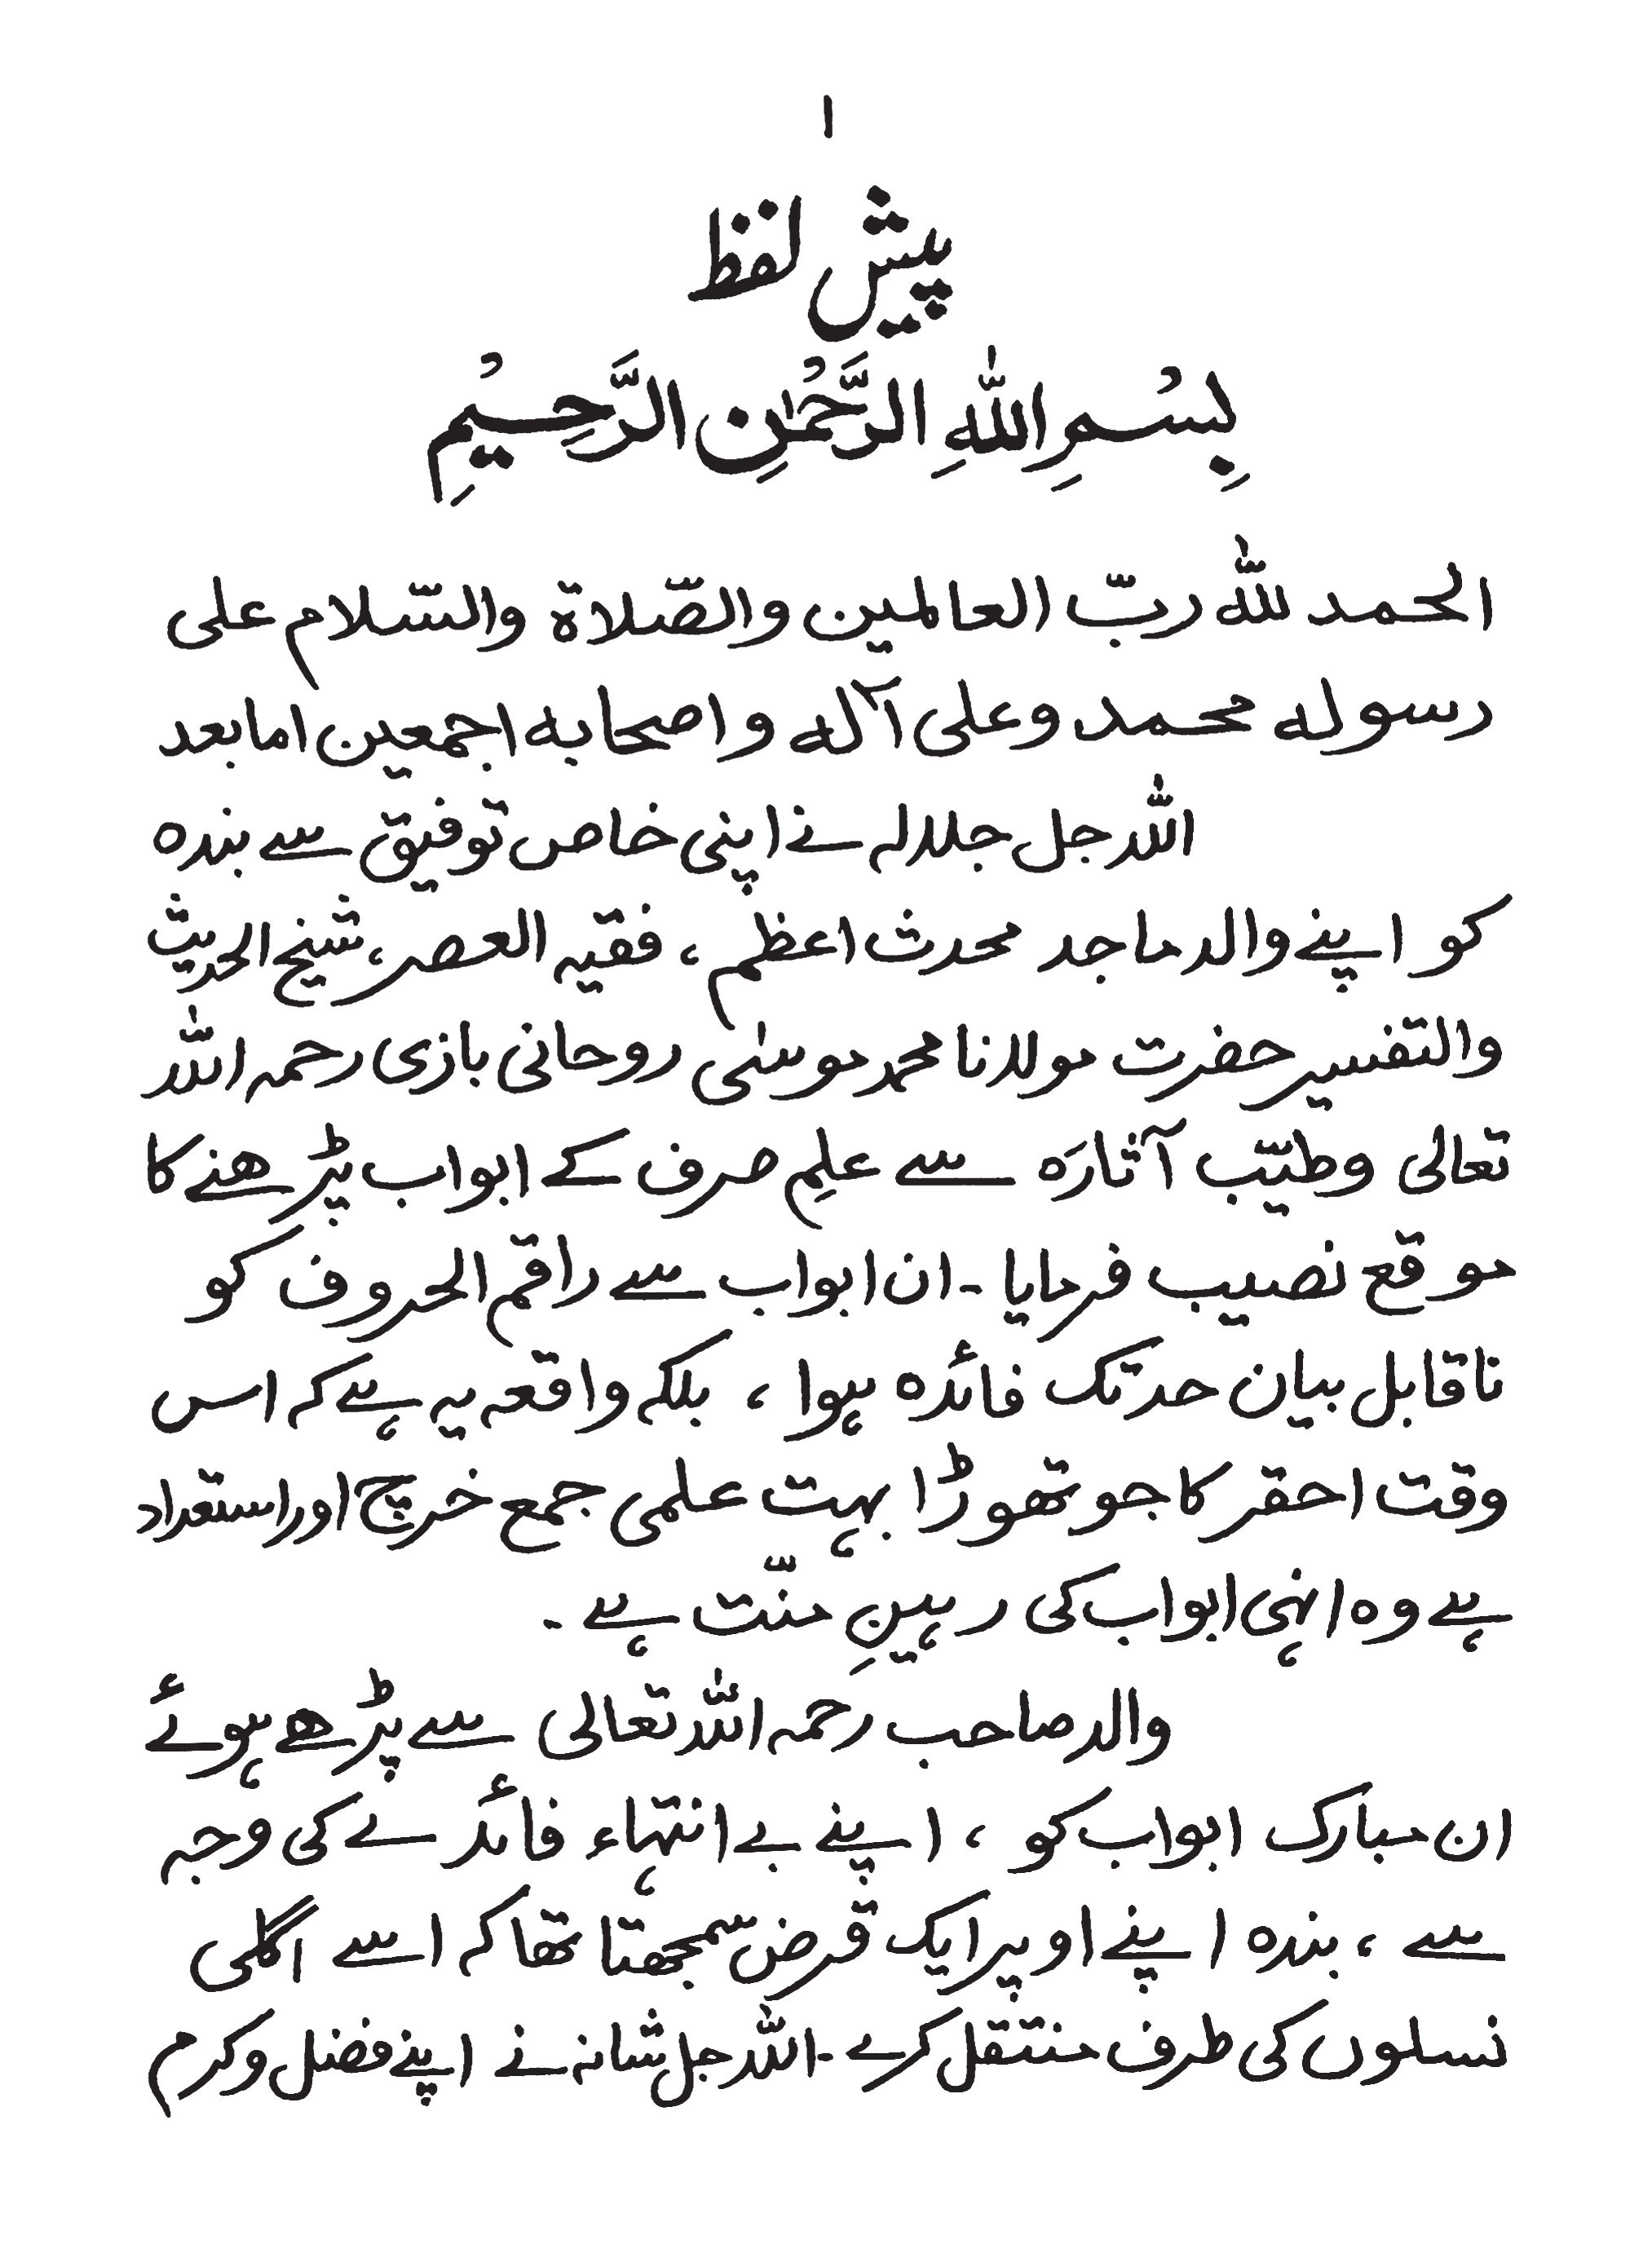 ۱
پیش لفظ
بِسْمِ اللهِ الرَّحْمٰنِ الرَّحِیْمِ
الحمد لله ربّ العالمین والصّلاة والسّلام علی
رسوله محمد وعلی آله و اصحابه اجمعین اما بعد
اللہ جل جلالہ نے اپنی خاص توفیق سے بندہ
کو اپنے والد ماجد محدث اعظم ، فقیہ العصر ، شیخ الحدیث
والتفسیر حضرت مولانا محمد موسٰی روحانی بازی رحمہ اللہ
تعالی وطیّب آثارَہ سے علمِ صرف کے ابواب پڑھنے کا
موقع نصیب فرمایا ۔ ان ابواب سے راقم الحروف کو
ناقابل بیان حد تک فائدہ ہوا ، بلکہ واقعہ یہ ہے کہ اس
وقت احقر کا جو تھوڑا بہت علمی جمع خرچ اور استعداد
ہے وہ انہی ابواب کی رہینِ منّت ہے ۔
والد صاحب رحمہ اللہ تعالی سے پڑھے ہوئے
ان مبارک ابواب کو ، اپنے بے انتہاء فائدے کی وجہ
سے ، بندہ اپنے اوپر ایک قرض سمجھتا تھا کہ اسے اگلی
نسلوں کی طرف منتقل کرے ۔ اللہ جل شانہ نے اپنے فضل وکرم